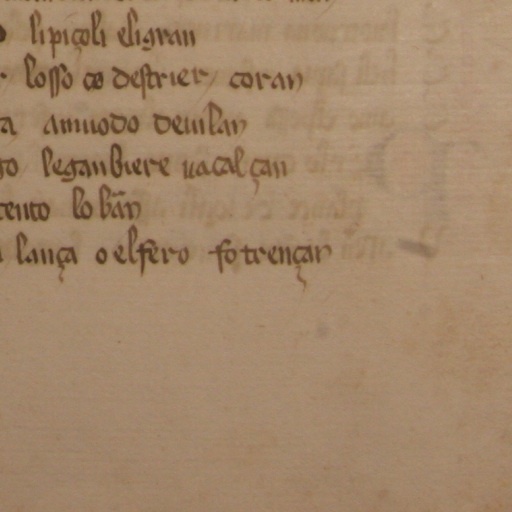 li piçoli eli gran
losso co destrier coran
a amuodo de uilan
go le ganbiere ua calçan
cento lo bãn
lança o el fero fo trençan